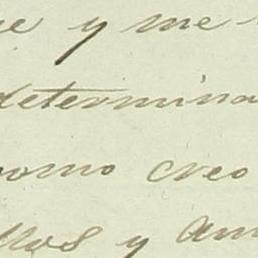 e y me
determina
como creo
llos y am